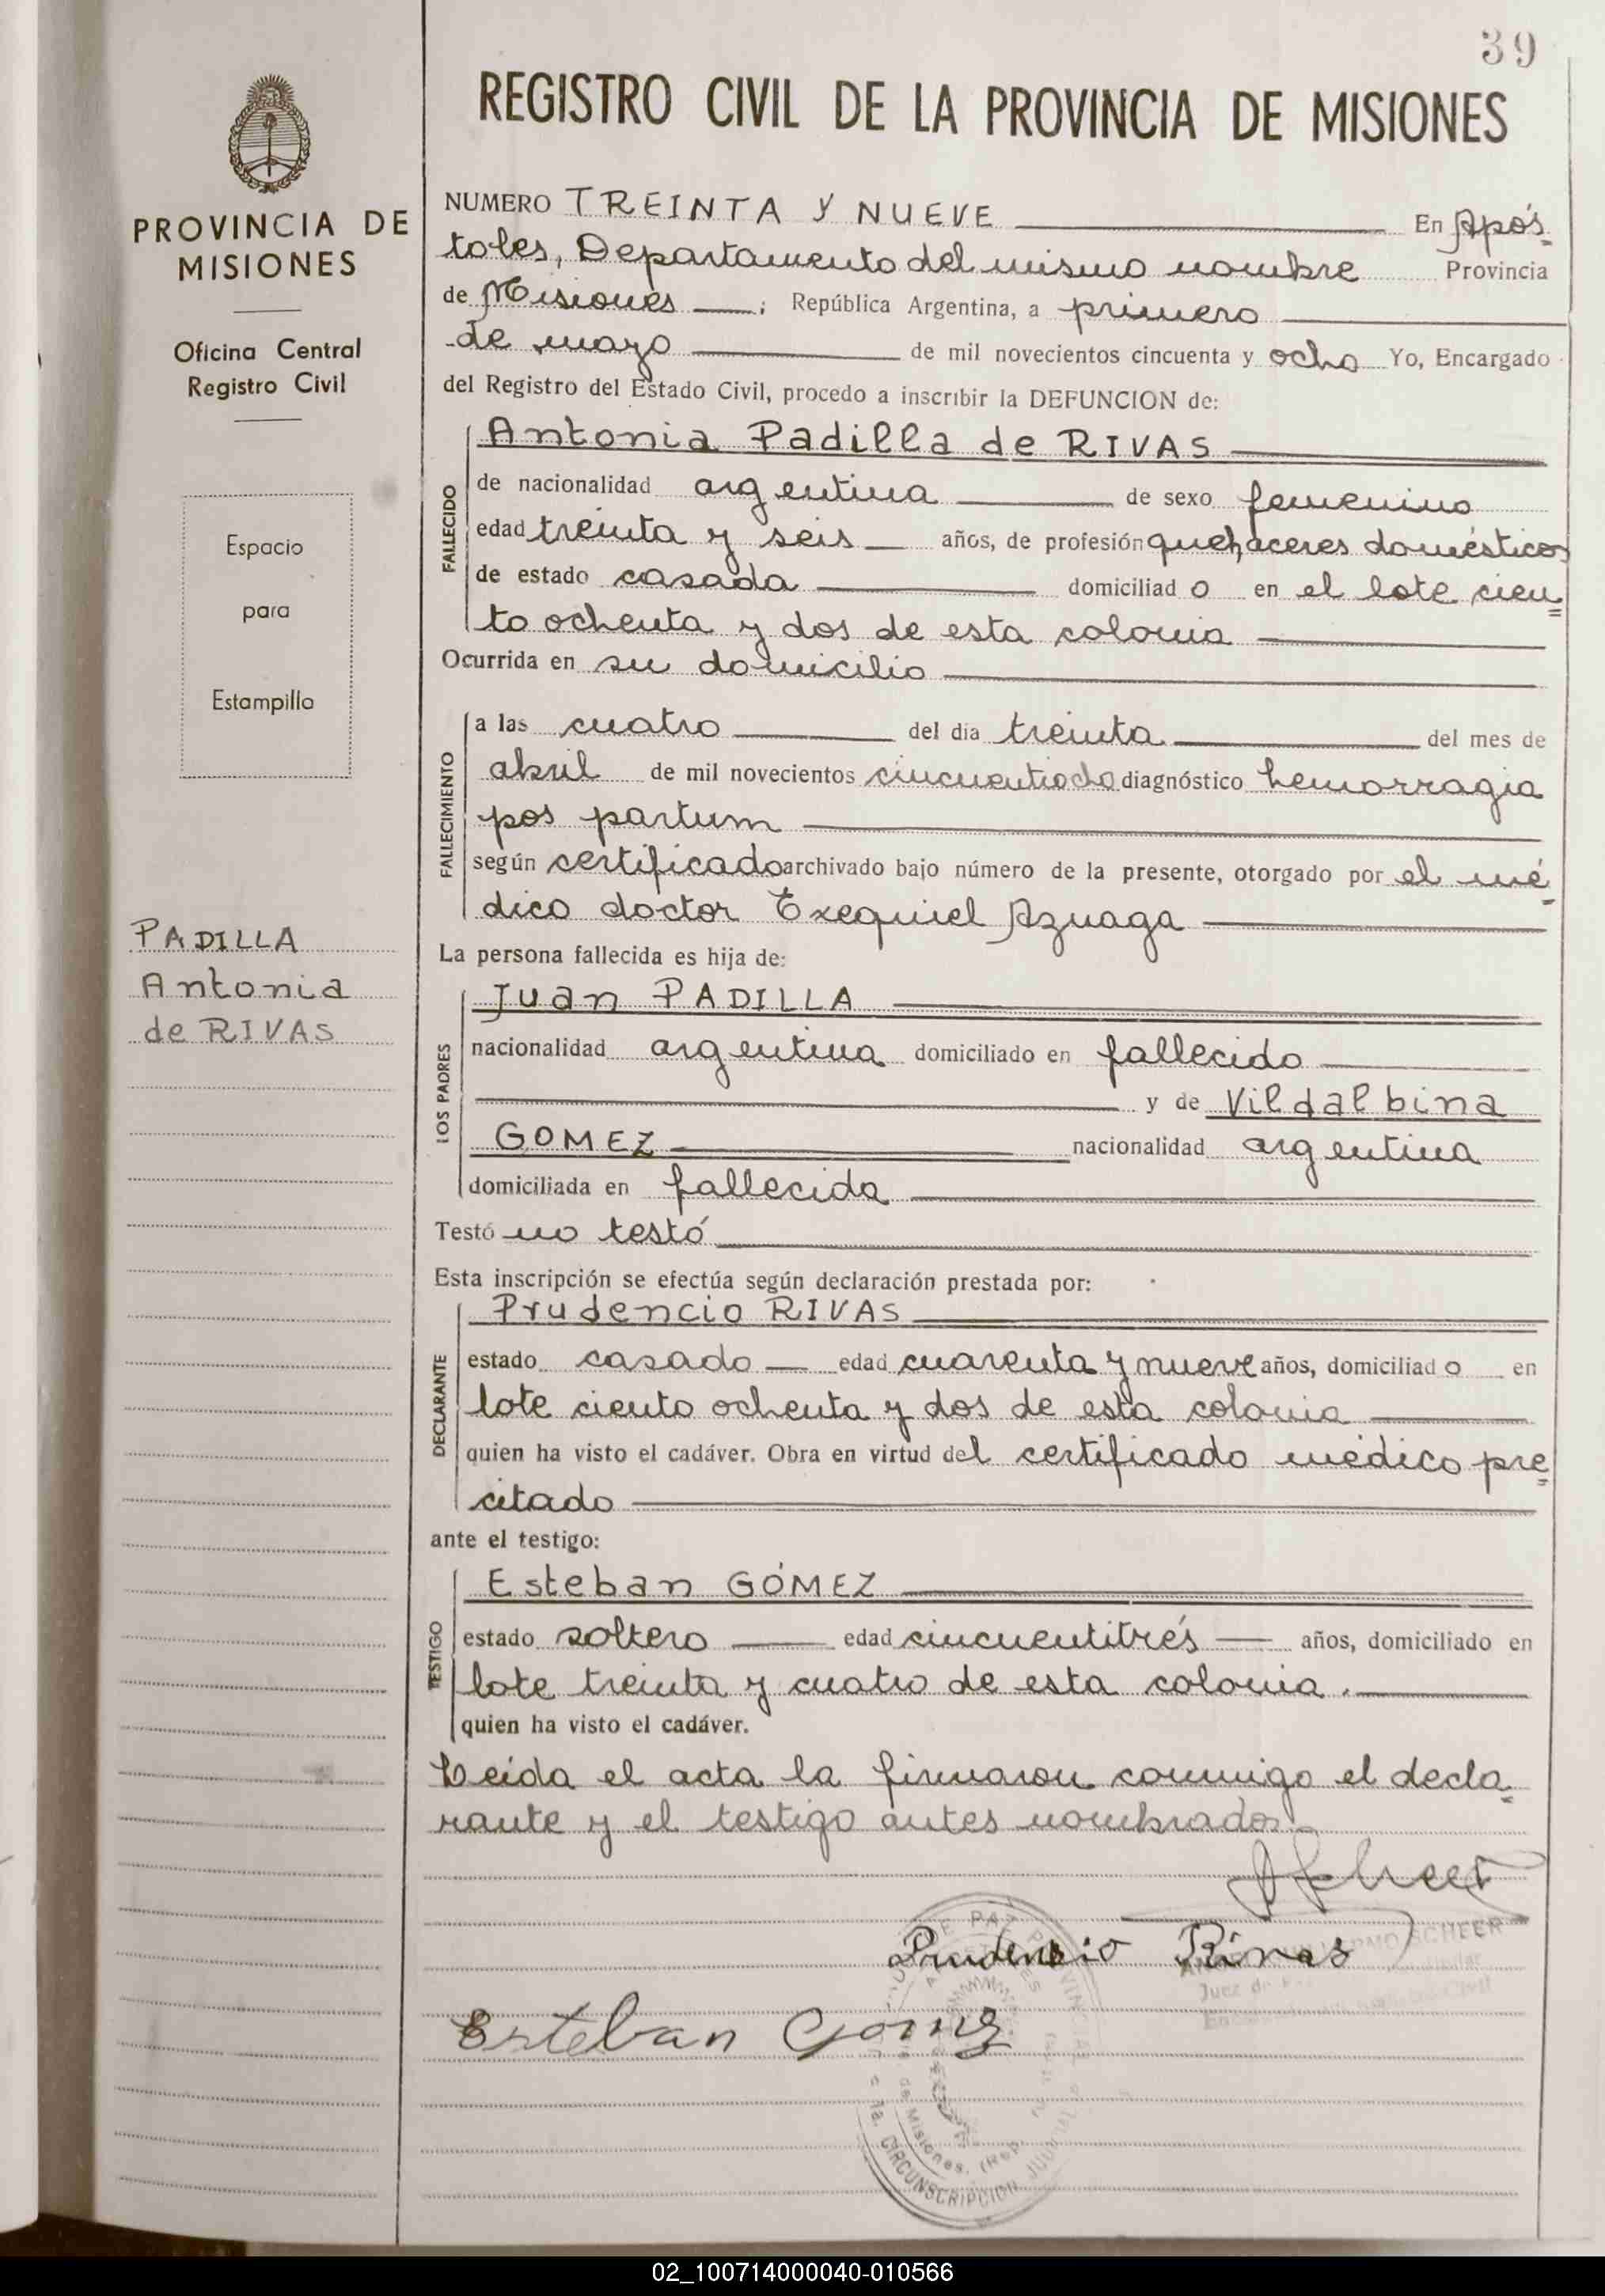 39
REGISTRO CIVIL DE LA PROVINCIA DE MISIONES
PROVINCIA DE
MISIONES
Oficina Central
Registro Civil
Espacio
para
Estampilla
PADILLA
Antonia
de RIVAS
NUMERO TREINTA Y NUEVE En Após-
toles, Departamento del mismo nombre Provincia
de Misiones ; República Argentina, a primero
de mayo de mil novecientos cincuenta y ocho Yo, Encargado
del Registro del Estado Civil, procedo a inscribir la DEFUNCION de:
FALLECIDO
Antonia Padilla de RIVAS
de nacionalidad argentina de sexo femenino
edad treinta y seis años, de profesión quehaceres domésticos
de estado casada domiciliado en el lote cien=
to ochenta y dos de esta colonia
Ocurrida en su domicilio
FALLECIMIENTO
a las cuatro del día treinta del mes de
abril de mil novecientos cincuentiocho diagnóstico hemorragia
pos partum
según certificado archivado bajo número de la presente, otorgado por el mé-
dico doctor Exequiel Azuaga
La persona fallecida es hija de:
LOS PADRES
Juan PADILLA
nacionalidad argentina domiciliado en fallecido
y de Vildalbina
GOMEZ nacionalidad argentina
domiciliada en fallecida
Testó no testó
Esta inscripción se efectúa según declaración prestada por:
DECLARANTE
Prudencio RIVAS
estado casado edad cuarenta y nueve años, domiciliado en
lote ciento ochenta y dos de esta colonia
quien ha visto el cadáver. Obra en virtud del certificado médico pre=
citado
ante el testigo:
TESTIGO
Esteban GÓMEZ
estado soltero edad cincuentitrés años, domiciliado en
lote treinta y cuatro de esta colonia.
quien ha visto el cadáver.
Leída el acta la firmaron conmigo el decla=
rante y el testigo antes nombrados.
Prudencio Rivas
SCHEER
Juez de
Esteban Gomez
CIRCUNSCRIPCION JUDICIAL
de Misiones. (Rep.
02_100714000040-010566